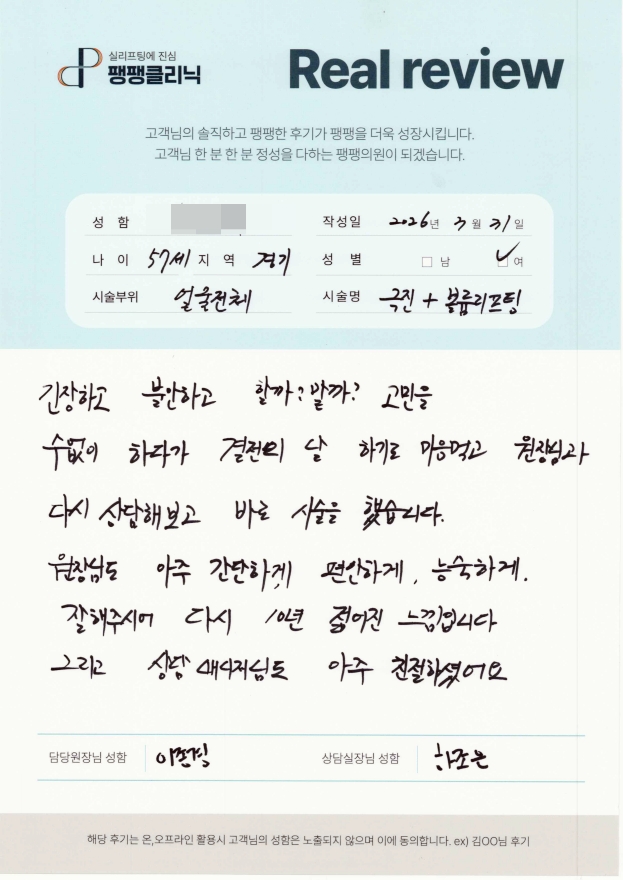 실리프팅에 진심
팽팽클리닉
Real review
고객님의 솔직하고 팽팽한 후기가 팽팽을 더욱 성장시킵니다.
고객님 한 분 한 분 정성을 다하는 팽팽의원이 되겠습니다.
성 함 작성일 2026년 3월 31일
나 이 57세 지 역 경기 성 별 남 여
시술부위 얼굴전체 시술명 극진 + 볼륨리프팅
긴장하고 불안하고 할까? 말까? 고민을
수없이 하다가 결전의 날 하기로 마음먹고 원장님과
다시 상담해보고 바로 시술을 했습니다.
원장님도 아주 간단하게, 편안하게, 능숙하게.
잘해주시어 다시 10년 젊어진 느낌입니다
그리고 상담 매니저님도 아주 친절하셨어요
담당원장님 성함 상담실장님 성함 하조은
해당 후기는 온,오프라인 활용시 고객님의 성함은 노출되지 않으며 이에 동의합니다. ex) 김OO님 후기